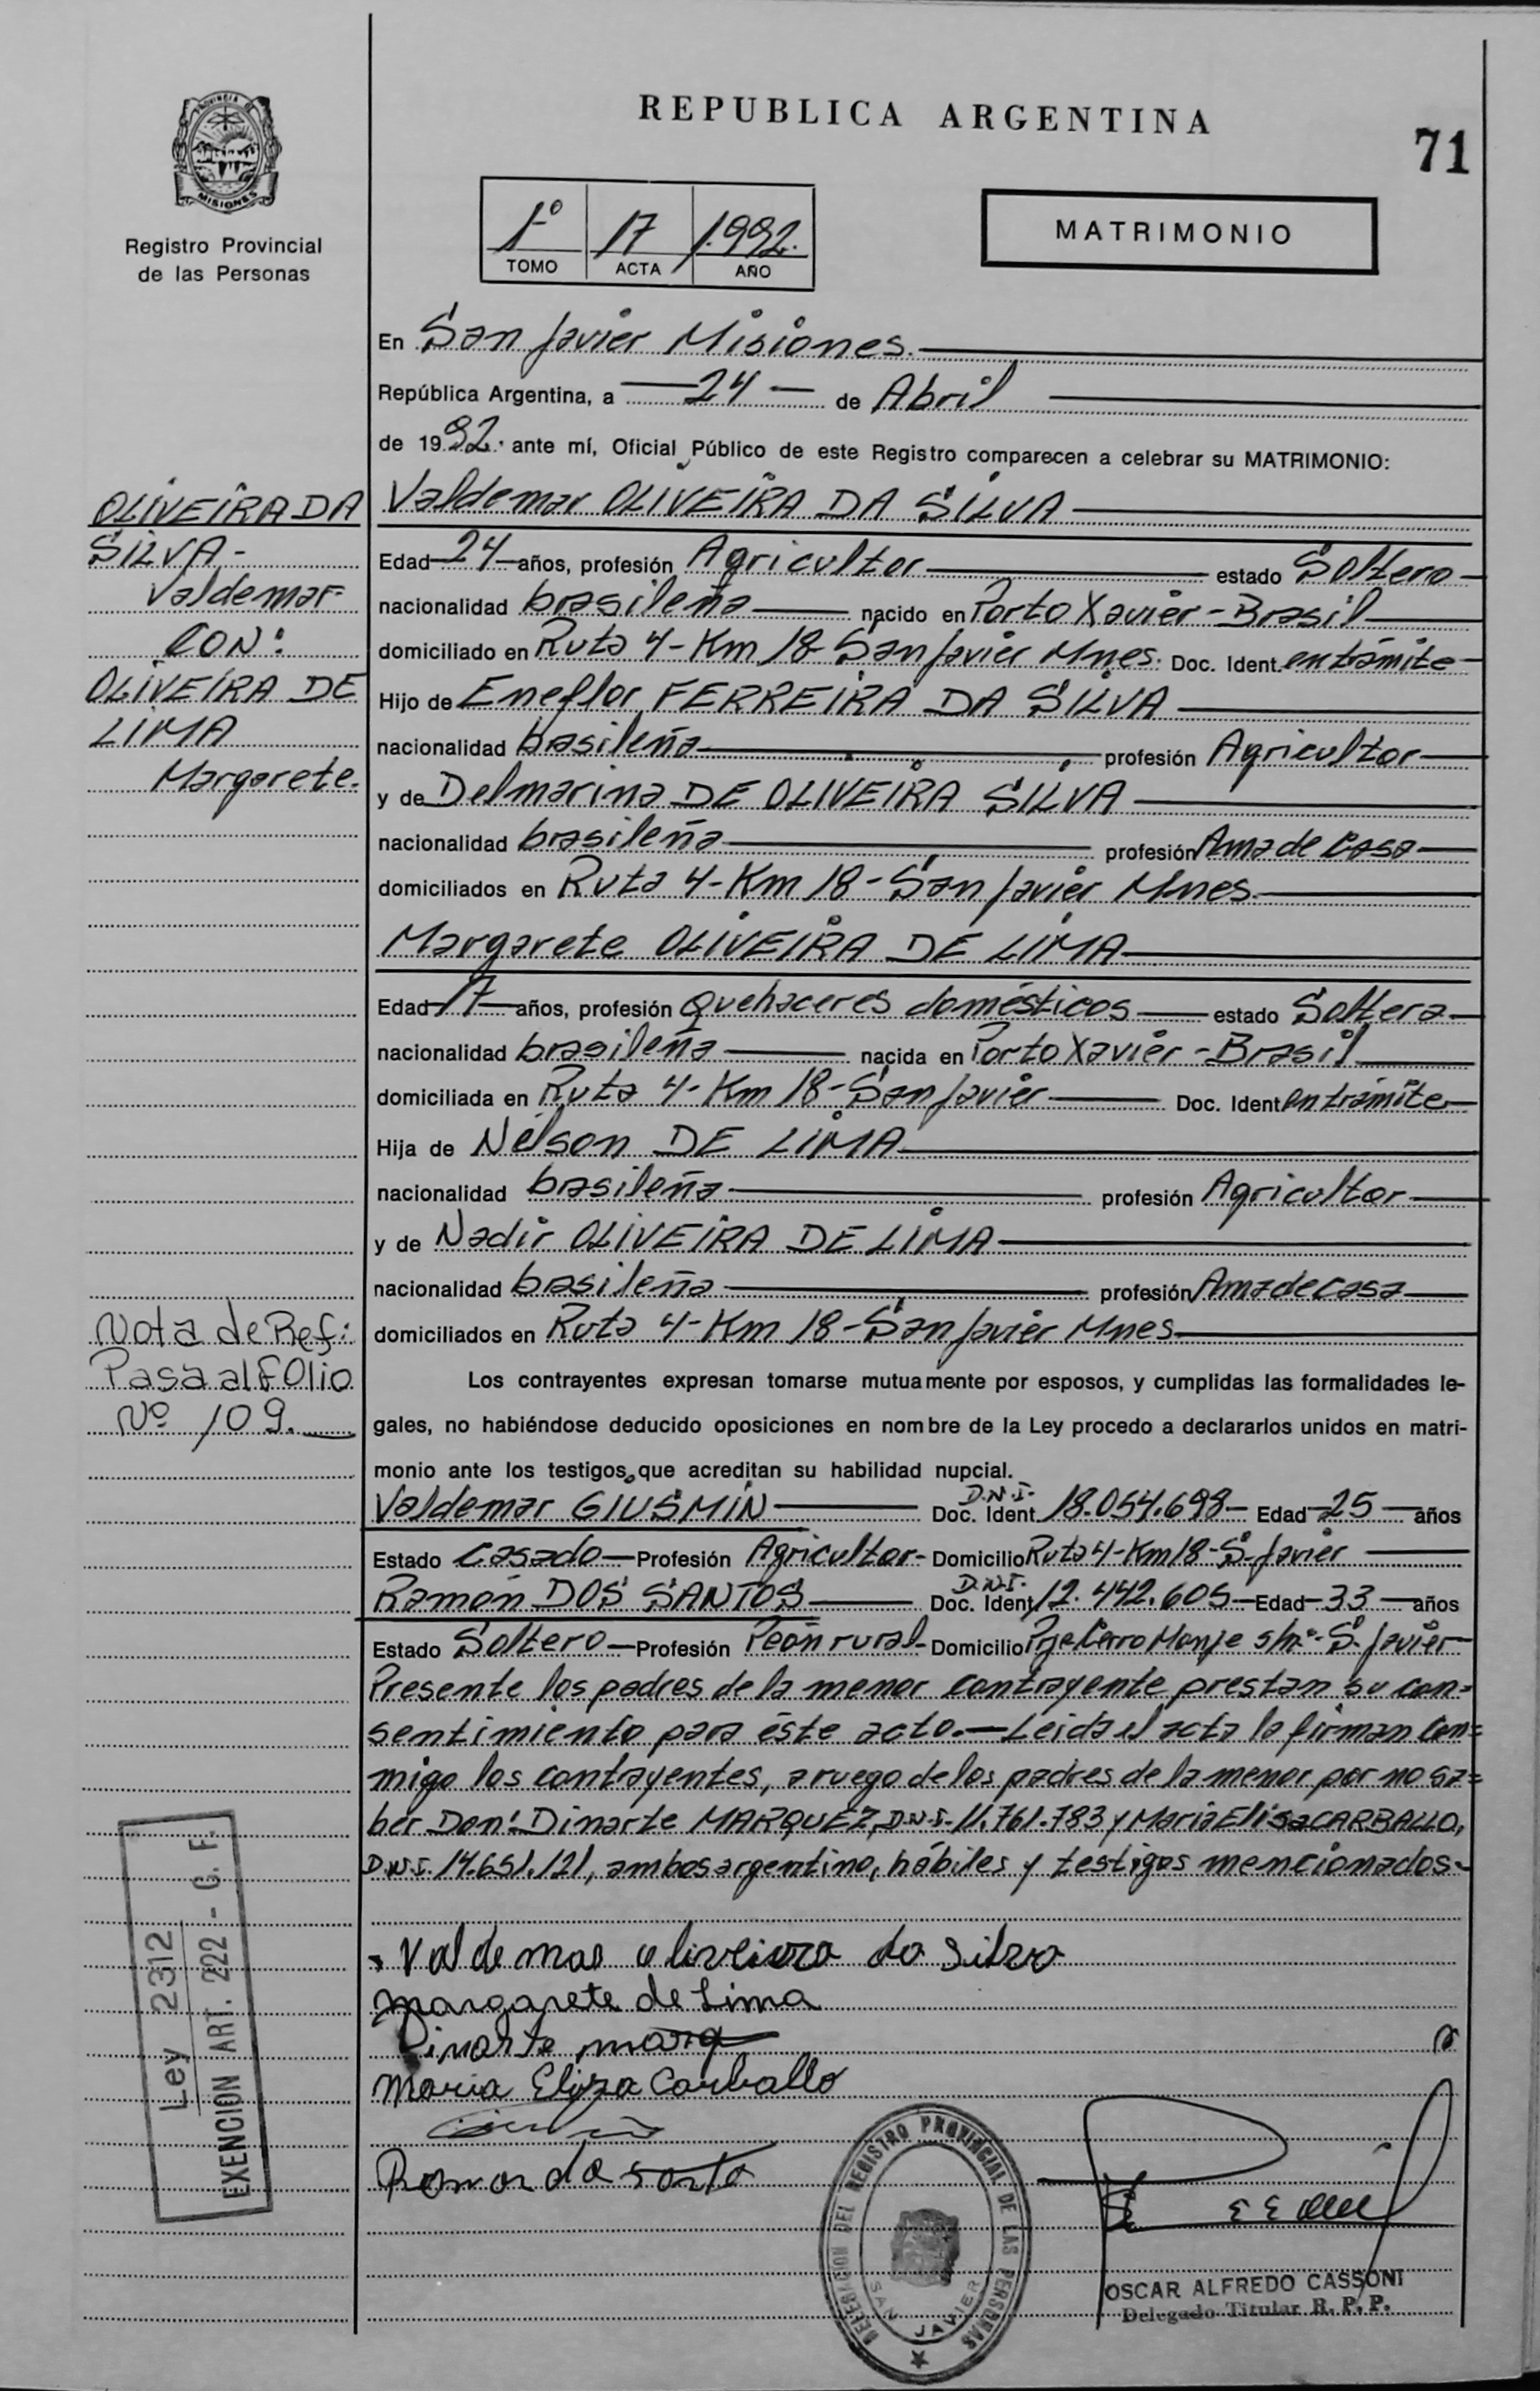 REPUBLICA ARGENTINA
71
PROVINCIA DE
MISIONES
Registro Provincial
de las Personas
1º 17 1.992.
TOMO ACTA AÑO
MATRIMONIO
En San Javier Misiones.
República Argentina, a 24 de Abril
de 1992. ante mí, Oficial Público de este Registro comparecen a celebrar su MATRIMONIO:
OLIVEIRA DA
SILVA-
Valdemar-
CON:
OLIVEIRA DE
LIMA
Margarete.
Valdemar OLIVEIRA DA SILVA
Edad 24 años, profesión Agricultor estado Soltero
nacionalidad brasileña nacido en Porto Xavier-Brasil
domiciliado en Ruta 4-Km 18-San Javier Mnes. Doc. Ident. en trámite
Hijo de Eneflor FERREIRA DA SILVA
nacionalidad brasileña profesión Agricultor
y de Delmarina DE OLIVEIRA SILVA
nacionalidad brasileña profesión Ama de casa
domiciliados en Ruta 4-Km 18-San Javier Mnes.
Margarete OLIVEIRA DE LIMA
Edad 17 años, profesión Quehaceres domésticos estado Soltera
nacionalidad brasileña nacida en Porto Xavier-Brasil
domiciliada en Ruta 4-Km 18-San Javier Doc. Ident en trámite
Hija de Nelson DE LIMA
nacionalidad brasileña profesión Agricultor
y de Nadir OLIVEIRA DE LIMA
nacionalidad brasileña profesión Ama de casa
domiciliados en Ruta 4-Km 18-San Javier Mnes
Nota de Ref:
Pasa al Folio
Nº 109.
Los contrayentes expresan tomarse mutuamente por esposos, y cumplidas las formalidades le-
gales, no habiéndose deducido oposiciones en nombre de la Ley procedo a declararlos unidos en matri-
monio ante los testigos que acreditan su habilidad nupcial.
Valdemar GIUSMIN Doc. Ident D.N.I. 18.054.698 Edad 25 años
Estado Casado Profesión Agricultor Domicilio Ruta 4-Km 18-S. Javier
Ramón DOS SANTOS Doc. Ident D.N.I. 12.442.605 Edad 33 años
Estado Soltero Profesión Peón rural Domicilio Pje Cerro Monje s/nº-S. Javier
Presente los padres de la menor contrayente prestan su con=
sentimiento para éste acto.- Leida el acta la firman con=
migo los contrayentes, a ruego de los padres de la menor por no sa=
ber Don: Dinarte MARQUEZ, D.N.I. 11.761.783 y María Elisa CARBALLO,
D.N.I. 14.651.121, ambos argentino, hábiles y testigos mencionados.
Valdemar oliveira da silva
Margarete de Lima
Dinarte marq
Maria Eliza Carballo
Ley 2312
EXENCION ART. 222 - C. F.
DELEGACION DEL REGISTRO PROVINCIAL DE LAS PERSONAS
SAN JAVIER
OSCAR ALFREDO CASSONI
Delegado Titular R. P. P.